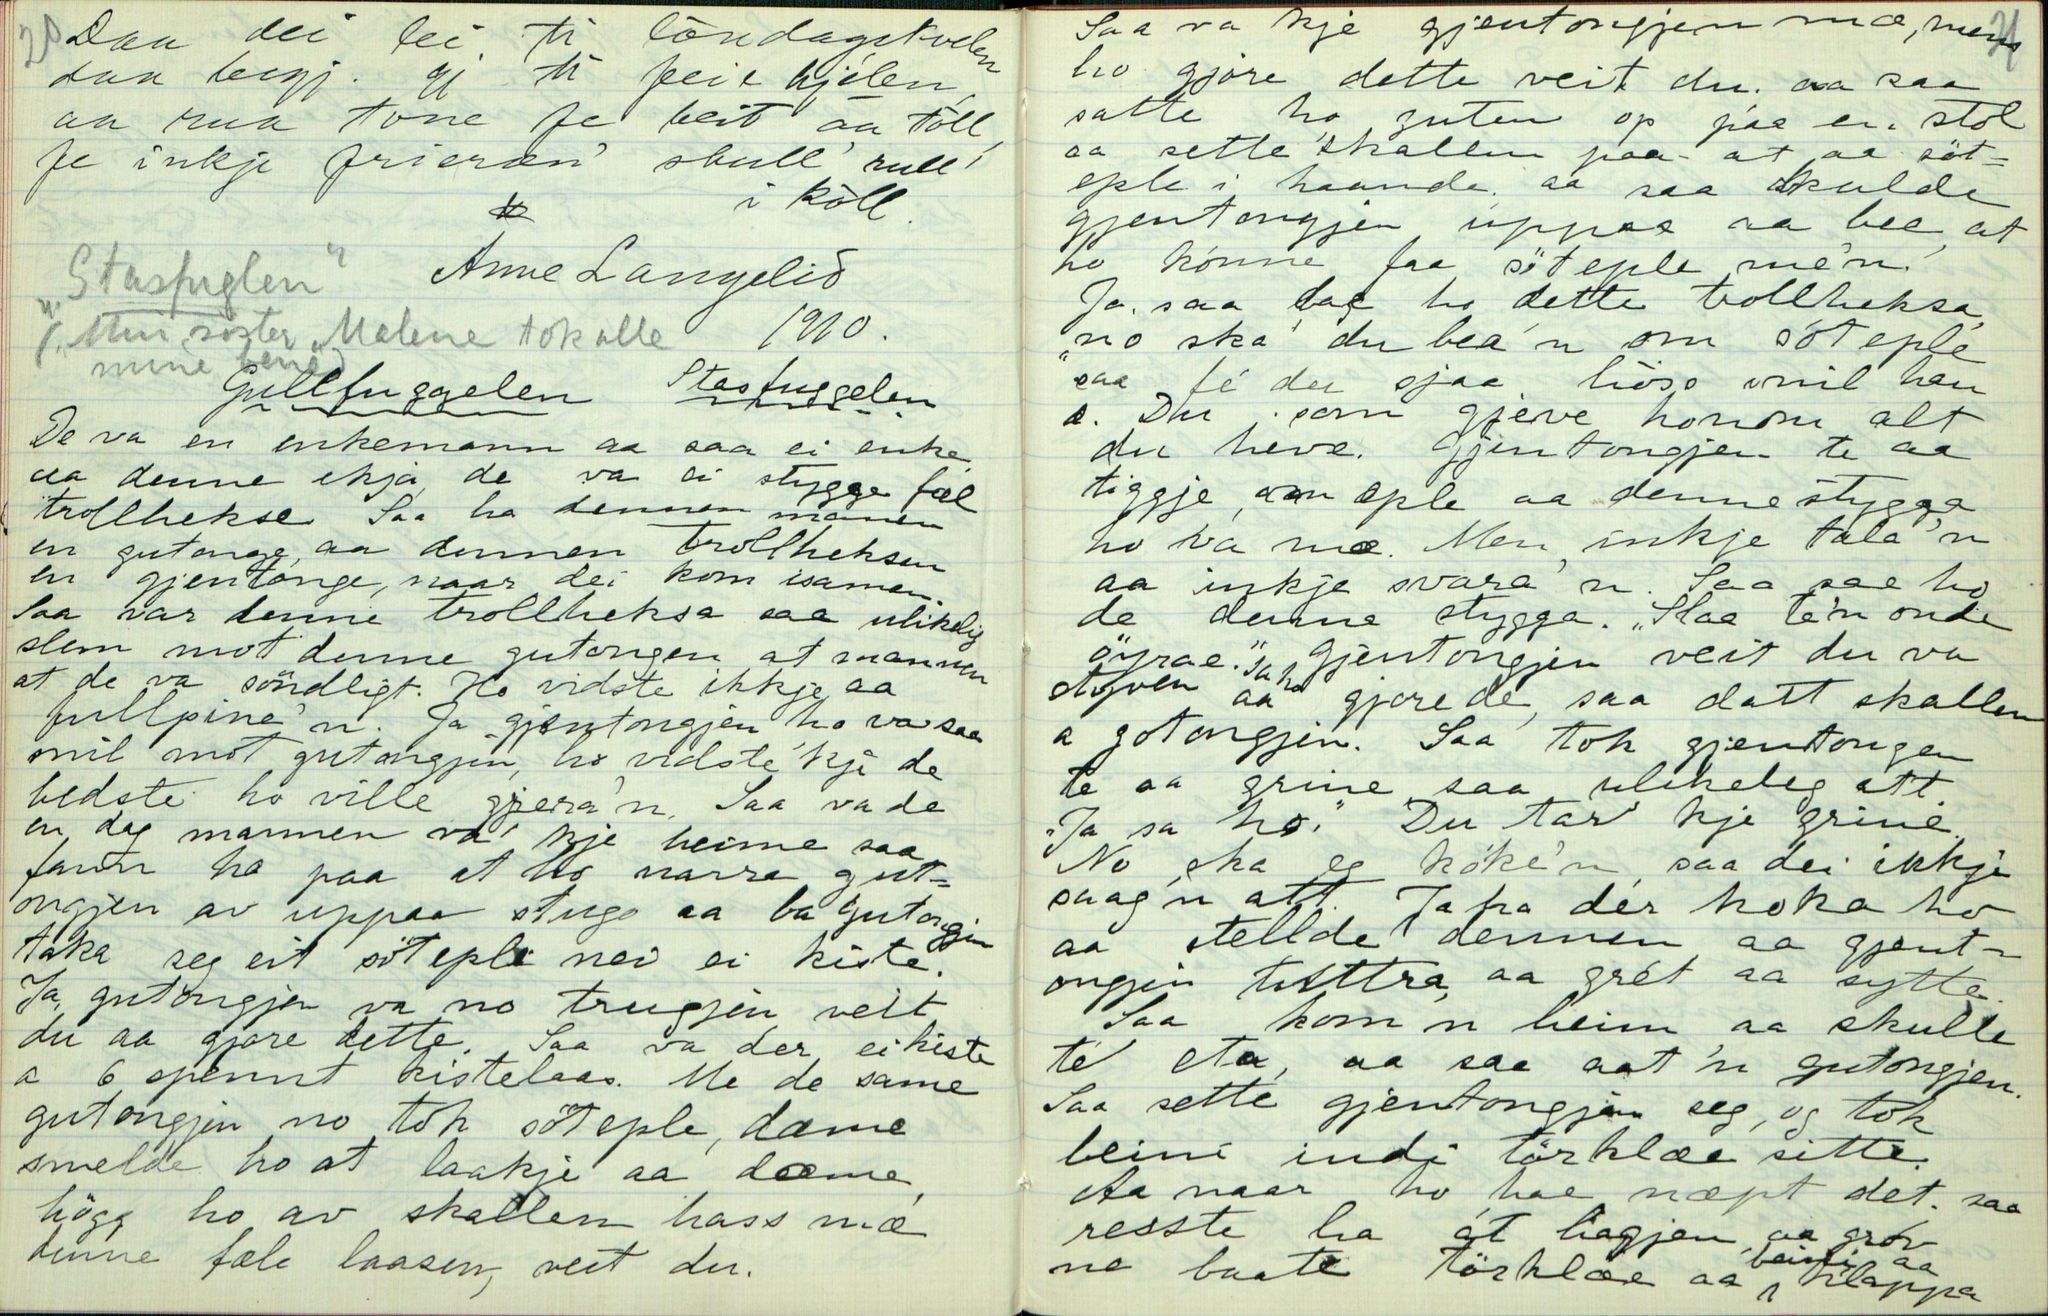 20
Daa dei lei ti löndagskvelen
daa begj. gj ti feie hjelen
aa rua tone fe beit aa töll
fe inkje frieren' skull' rull'
i köll.
Anne Langelid
1910.
"Stasfuglen"
"Min söster Malene tok alle
mine bene"
Gullfuggelen Stasfuggelen
De va en enkemann aa saa ei enke
aa denne ekja, de va ei stygge fæl
trollhekse. Saa ha dennen mannen
en gutonge, aa dennen trollheksen
en gjentonge, naar dei kom isamen.
Saa var denne trollheksa saa ulikelig
slem mot denne gutongen at mannen
at de va söndligt. Ho vidste ikkje aa
fullpine'n. Ja gjentongjen ho va saa
mil mot gutongjin, ho vidste'kje de
bedste ho ville gjera'n. Saa va de
en dag mannen va'kje heime saa
fann ho paa at ho narra gut=
ongjen av uppaa stugo aa ba gutongjin
taka seg eit söteple nei ei kiste.
Ja, gutongjen va no trugjen veit
du aa gjore dette. Saa va der ei kiste
a 6 spennt kistelaas. Me de same
gutongjin no tok söteple, dæme
smelde ho at laakje aa dæme,
högg ho av skallen hass mæ
denne fæle laasen, veit du.
21
Saa va kje gjentongjen mæ, mens
ho gjore dette veit du. aa saa
satte ho guten op paa en stol
aa sette skallen paa at aa söt=
eple i haande. aa saa skulde
gjentongjen uppaa aa bee, at
ho konne faa söteple me'n.
Ja. saa sae ho dette trollheksa,
"no ska' du bea'n om söteple
saa fé du sjaa hoss mil han
e. Du som gjeve honom alt
du heve. Gjentongjen te aa
tiggje, om eple aa denne stygga
ho va mæ. Men, inkje tala'n
aa inkje svara'n. Saa sae ho
de denne stygga. "Slaa te'n onde
öyrae." Gjentongjen veit du va
styven Sa ho aa gjore de, saa datt skallen
a gotongjin. Saa tok gjentongen
te aa grine saa ulikeleg att.
"Ja sa ho," Du tar'kje grine.
No ska eg koke'n, saa dei ikkje
saag'n att. Ja ha dér koka ho
aa stellde dennen aa gjent=
ongjin tuttra, aa grét aa sytte.
Saa kom'n heim aa skulle
te' eta, aa saa aat'n gutongjen.
Saa sette gjentongjin seg, og tok
beini indi törklæe sitte.
Aa naar ho hae næpt det. saa
resste ha åt hagjen, aa grov
ne baate törklæe aa beini aa klappa